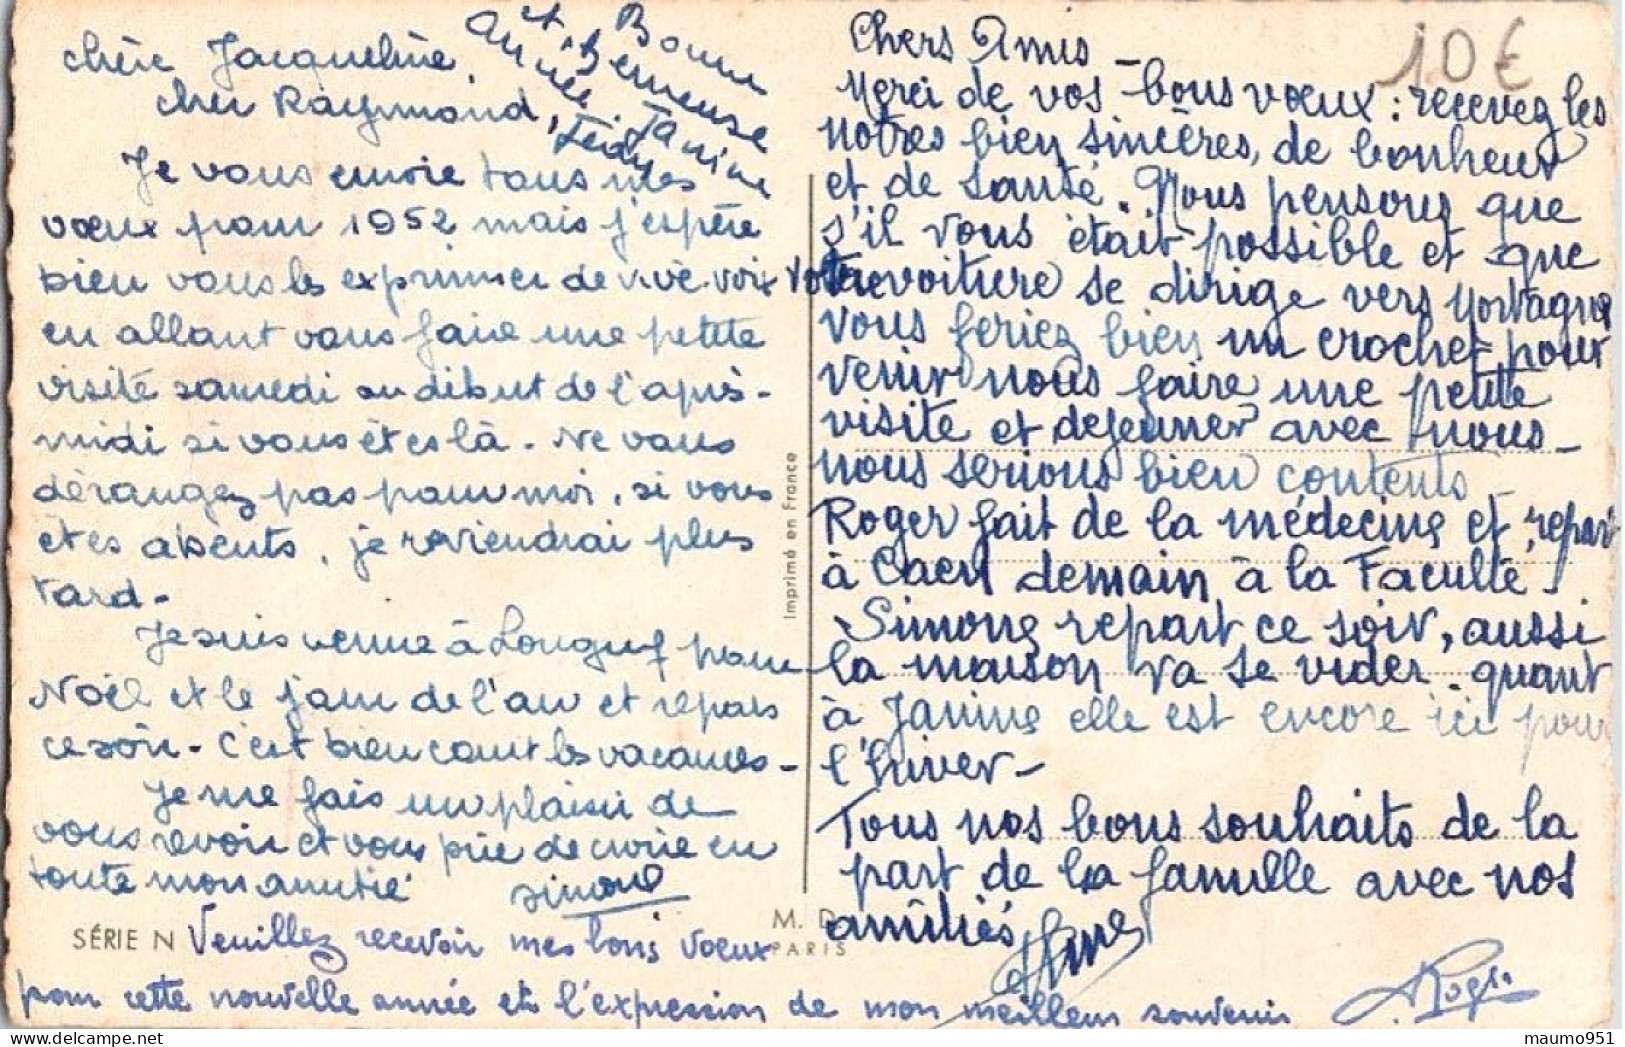 Bonne
et heureuse
Année Janine
chère Jacqueline,
cher Raymond,
Je vous envoie tous mes
vœux pour 1952 mais j'espère
bien vous les exprimer de vive voix
en allant vous faire une petite
visite samedi au début de l'après-
midi si vous êtes là. Ne vous
dérangez pas pour moi, si vous
êtes absents, je reviendrai plus
tard.
Je suis venue à pour
Noël et le jour de l'an et repars
ce soir. C'est bien court les vacances.
Je me fais un plaisir de
vous revoir et vous prie de croire en
toute mon amitié
Simone
Chers Amis -
Merci de vos bons vœux : recevez les
notres bien sincères, de bonheur
et de santé. Nous pensons que
s'il vous était possible et que
votre voiture se dirige vers Mortagne
vous feriez bien un crochet pour
venir nous faire une petite
visite et dejeuner avec nous -
nous serions bien contents -
Roger fait de la médecine et repart
à Caen demain à la Faculté -
Simone repart ce soir, aussi
la maison va se vider. quant
à Janine elle est encore ici pour
l'hiver -
Tous nos bons souhaits de la
part de la famille avec nos
amitiés
Veuillez recevoir mes bons vœux
pour cette nouvelle année et l'expression de mon meilleur souvenir
Roger
10 €
Imprimé en France
SÉRIE N
M. D.
PARIS
maumo951